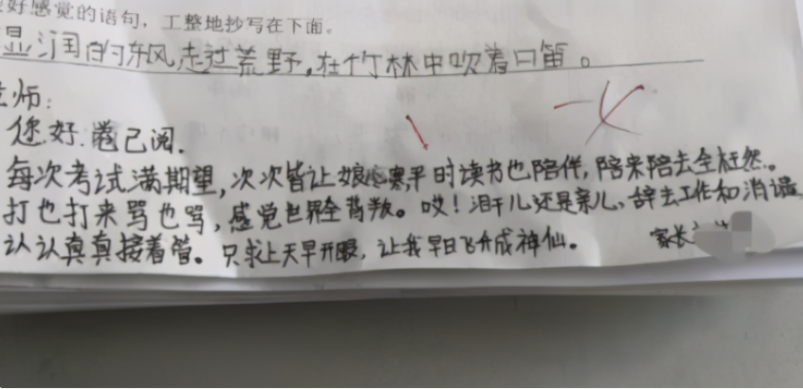 好感觉的语句，工整地抄写在下面。
湿润的东风，走过荒野，在竹林中吹着口笛。
老师：
您好.卷已阅.
每次考试满期望，次次皆让娘心寒，平时读书也陪伴，陪来陪去全枉然。
打也打来骂也骂，感觉世界全背叛。哎！泪干儿还是亲儿、辞去工作和消遣
认认真真接着管。只求上天早开眼，让我早日飞升成神仙。
家长